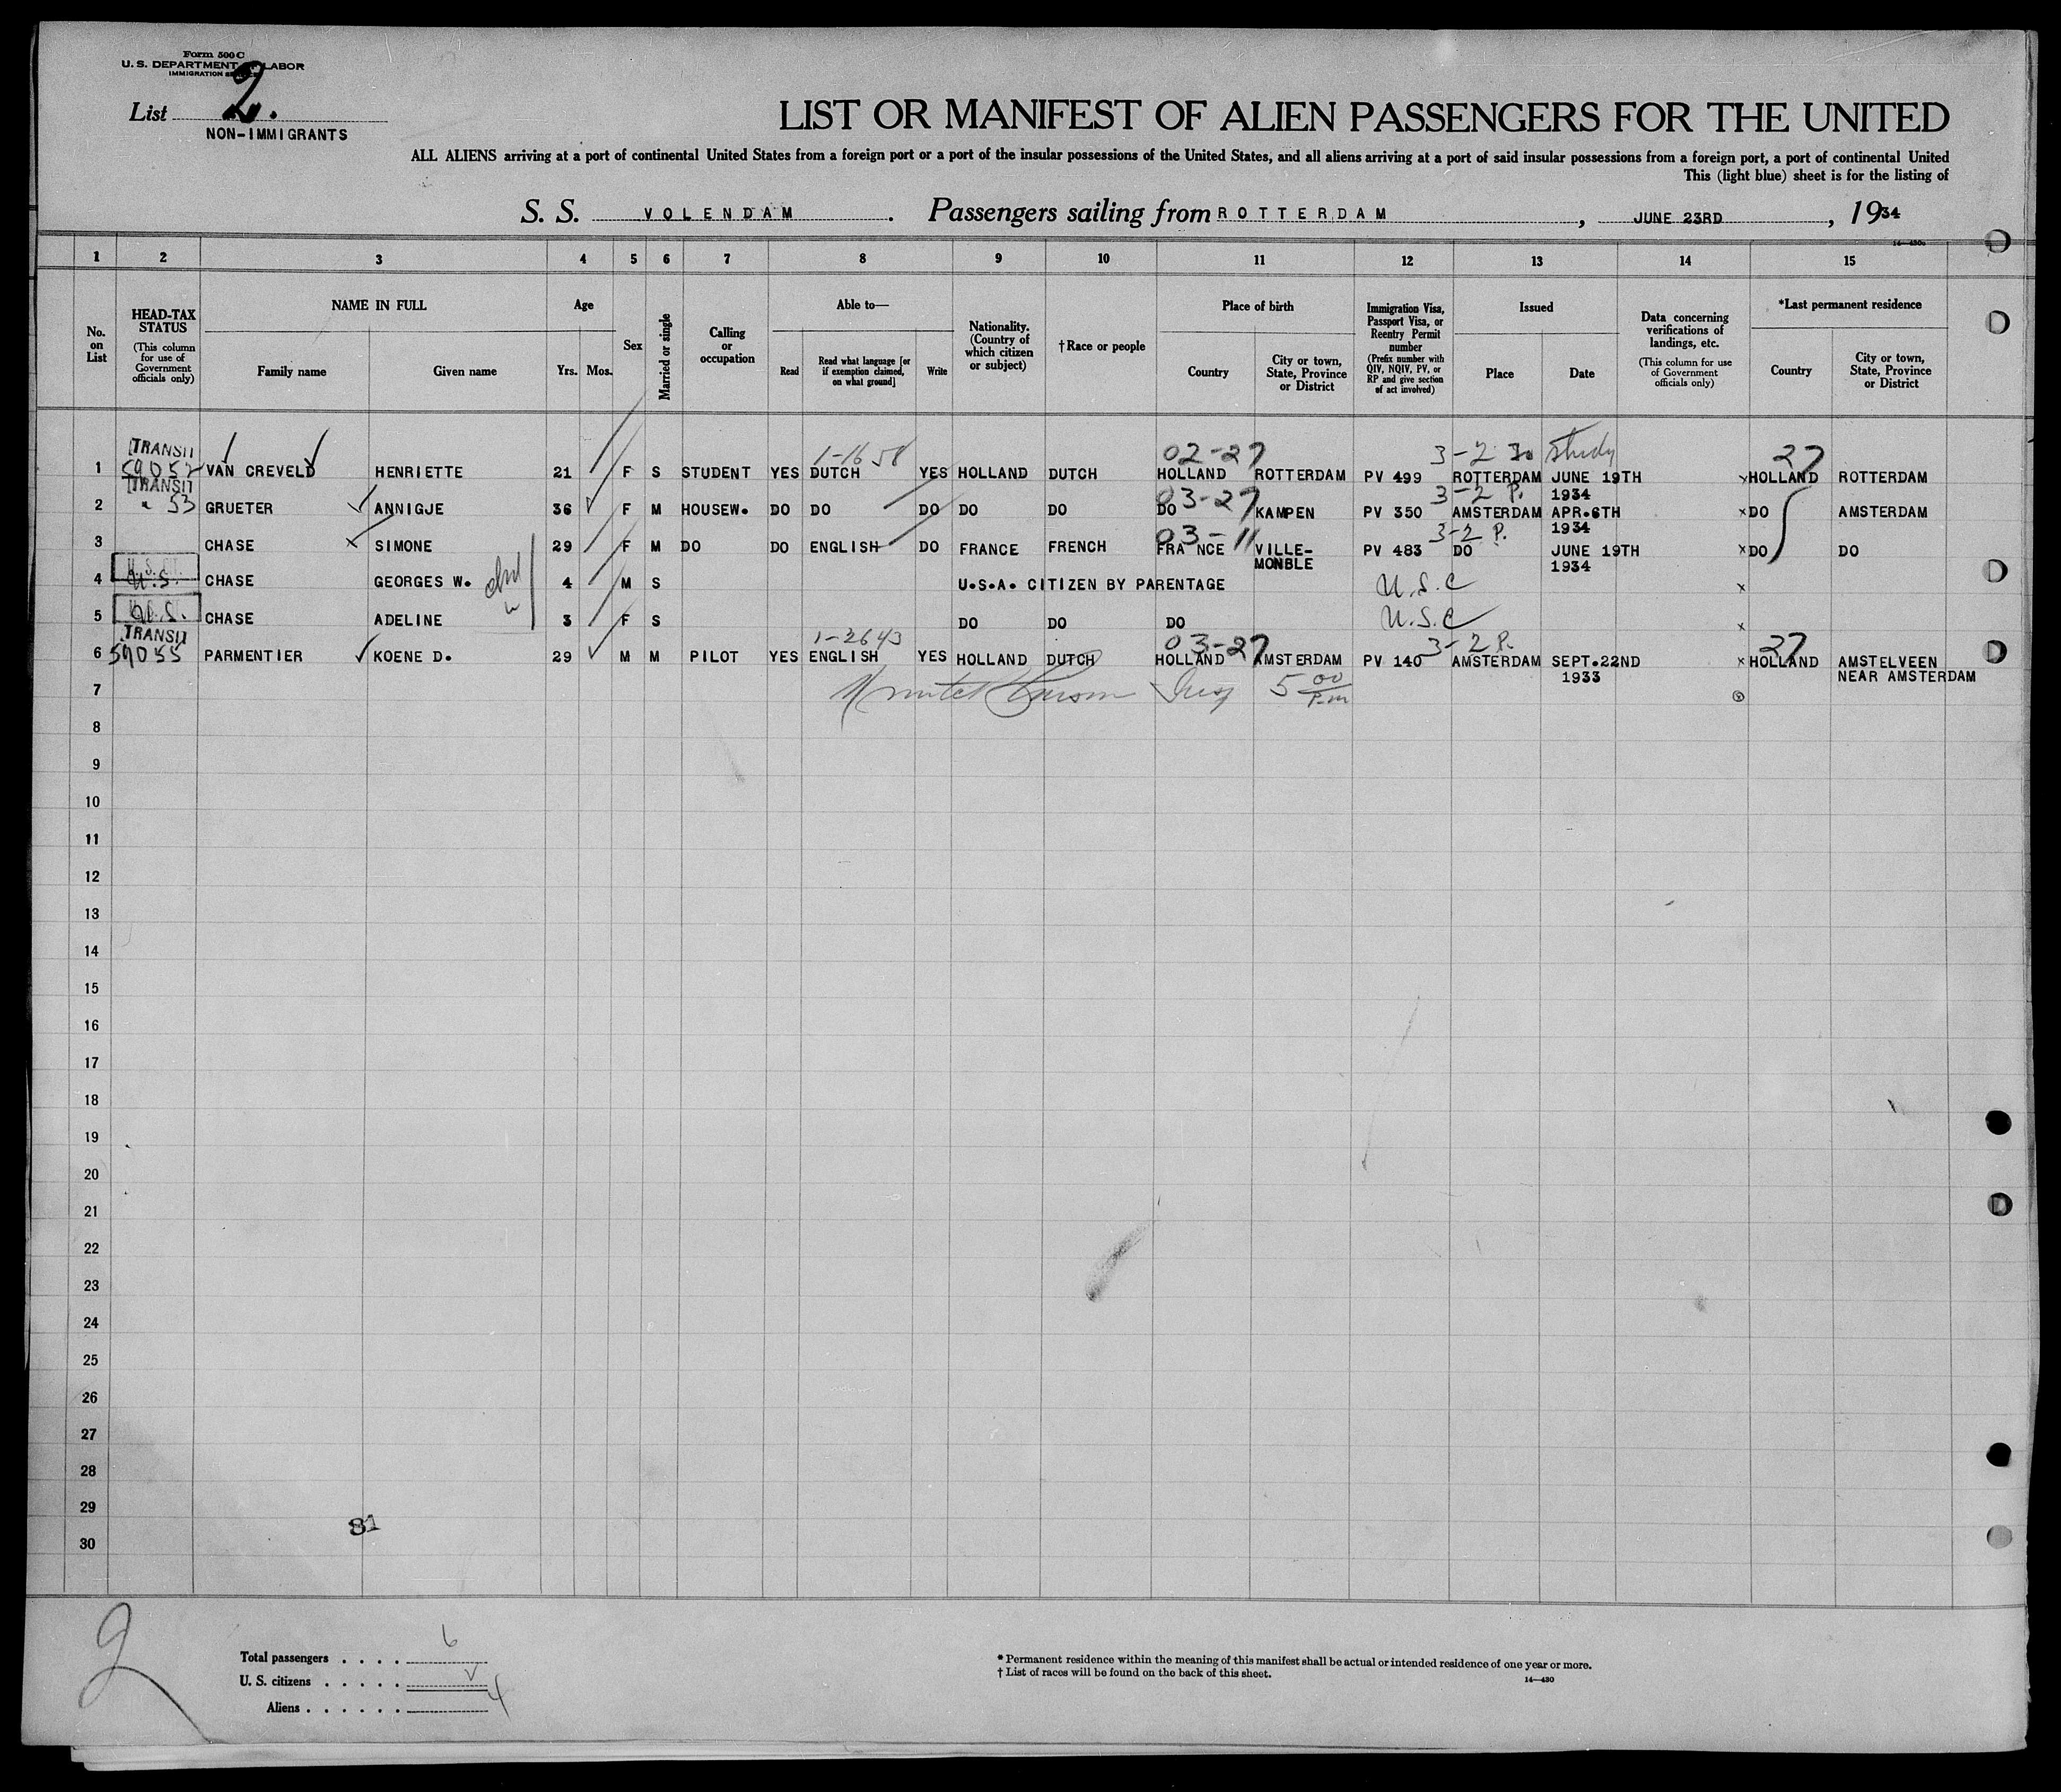 Form 500 C
U. S. DEPARTMENT OF LABOR
IMMIGRATION SERVICE
List 2.
NON-IMMIGRANTS
LIST OR MANIFEST OF ALIEN PASSENGERS FOR THE UNITED
ALL ALIENS arriving at a port of continental United States from a foreign port or a port of the insular possessions of the United States, and all aliens arriving at a port of said insular possessions from a foreign port, a port of continental United
This (light blue) sheet is for the listing of
S. S. VOLENDAM . Passengers sailing from ROTTERDAM , JUNE 23RD , 1934
1 2 3 4 5 6 7 8 9 10 11 12 13 14 15
No. on List
HEAD-TAX STATUS (This column for use of Government officials only)
NAME IN FULL
Family name Given name
Age
Yrs. Mos.
Sex
Married or single
Calling or occupation
Able to—
Read Read what language [or if exemption claimed, on what ground] Write
Nationality. (Country of which citizen or subject)
†Race or people
Place of birth
Country City or town, State, Province or District
Immigration Visa, Passport Visa, or Reentry Permit number (Prefix number with QIV, NQIV, PV, or RP and give section of act involved)
Issued
Place Date
Data concerning verifications of landings, etc. (This column for use of Government officials only)
*Last permanent residence
Country City or town, State, Province or District
TRANSIT 1-16 58 02-27 3-2 study 27
1 59052 VAN CREVELD HENRIETTE 21 F S STUDENT YES DUTCH YES HOLLAND DUTCH HOLLAND ROTTERDAM PV 499 ROTTERDAM JUNE 19TH 1934 x HOLLAND ROTTERDAM
TRANSIT 03-27 3-2 P.
2 " 53 GRUETER ANNIGJE 36 F M HOUSEW. DO DO DO DO DO DO KAMPEN PV 350 AMSTERDAM APR.6TH 1934 x DO AMSTERDAM
03-11 3-2 P.
3 CHASE SIMONE 29 F M DO DO ENGLISH DO FRANCE FRENCH FRANCE VILLE-MONBLE PV 483 DO JUNE 19TH 1934 x DO DO
4 U.S. CHASE GEORGES W. 4 M S U.S.A. CITIZEN BY PARENTAGE U.S.C x
5 U.S. CHASE ADELINE 3 F S DO DO DO U.S.C x
TRANSIT 1-2643 03-27 3-2 P. 27
6 59055 PARMENTIER KOENE D. 29 M M PILOT YES ENGLISH YES HOLLAND DUTCH HOLLAND AMSTERDAM PV 140 AMSTERDAM SEPT.22ND 1933 x HOLLAND AMSTELVEEN NEAR AMSTERDAM
7 Insp 5 00 P.m
8
9
10
11
12
13
14
15
16
17
18
19
20
21
22
23
24
25
26
27
28
29
81
30
2
Total passengers . . . . 6
U. S. citizens . . . . .
Aliens . . . . . . 4
* Permanent residence within the meaning of this manifest shall be actual or intended residence of one year or more.
† List of races will be found on the back of this sheet.
14—430